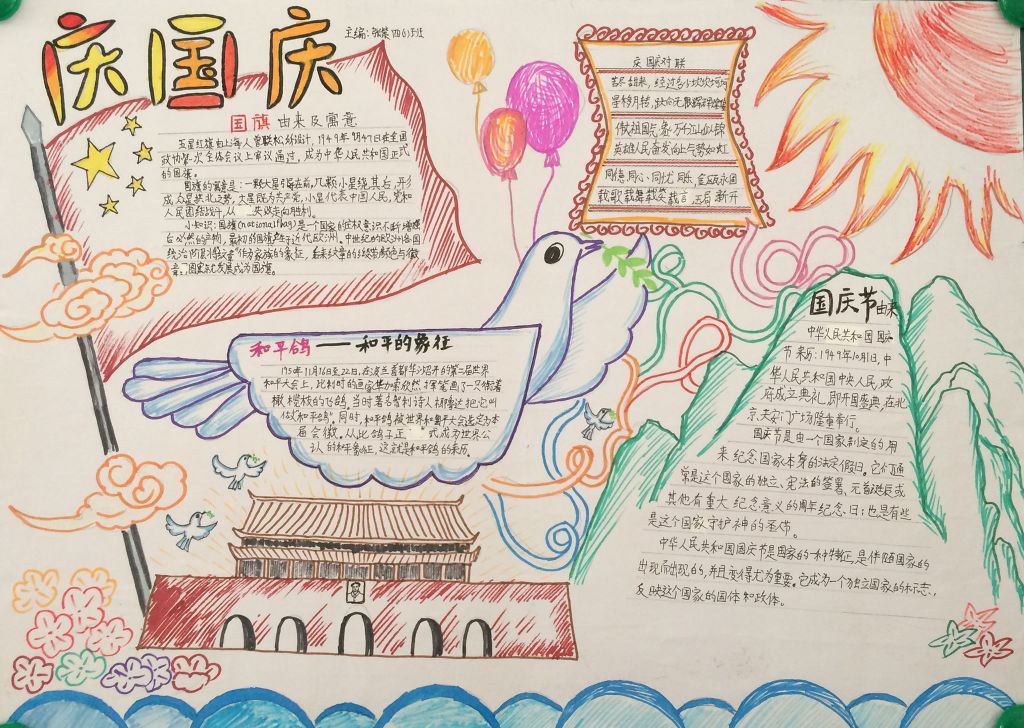 庆国庆
主编:张 四(6)班
国旗由来及寓意
五星红旗由上海人曾联松设计,1949年9月27日在全国
政协 次全体会议上审议通过,成为中华人民共和国正式
的国旗。
国旗的寓意是:一颗大星引导在前,几颗小星绕其右,形
成众星拱北之势,大星既为共产党,小星代表中国人民,党和
人民团结战斗,从 走向胜利。
小知识:国旗(national flag)是一个国家的主权意识不断增强
后必然的产物,最初的国旗产生于近代欧洲,中世纪的欧洲各国
统治阶层将纹章作为家族的象征,后来纹章的线条颜色与徽
章,图案 发展成为国旗。
庆国庆对联
苦尽甜来,经过多少坎坎坷坷
星移月转,
山似锦
英雄人民奋发向上气势如虹
同德同心同忧同乐,
载歌载舞载笑载言
和平鸽——和平的象征
1950年11月16日至22日,在波兰首都华沙召开的第二届世界
和平大会上,比利时的画家 欣然挥笔画了一只衔着
橄榄枝的飞鸽。当时著名智利诗人 把它叫
做"和平鸽"。同时,和平鸽被世界和平大会选定为本
届会徽。从此鸽子正 式成为世界公
认的和平象征,这就是和平鸽的来历。
国庆节由来
中华人民共和国国庆
节来历:1949年10月1日,中
华人民共和国中央人民政
府成立典礼,即开国盛典,在北
京天安门广场隆重举行。
国庆节是由一个国家制定的用
来纪念国家本身的法定假日。它们通
常是这个国家的独立、宪法的签署、元首诞辰或
其他有重大纪念意义的周年纪念日;也是有些
是这个国家守护神的圣节。
中华人民共和国国庆节是国家的一种特征,是伴随国家的
出现而出现的,并且变得尤为重要。它成为一个独立国家的标志,
反映这个国家的国体和政体。